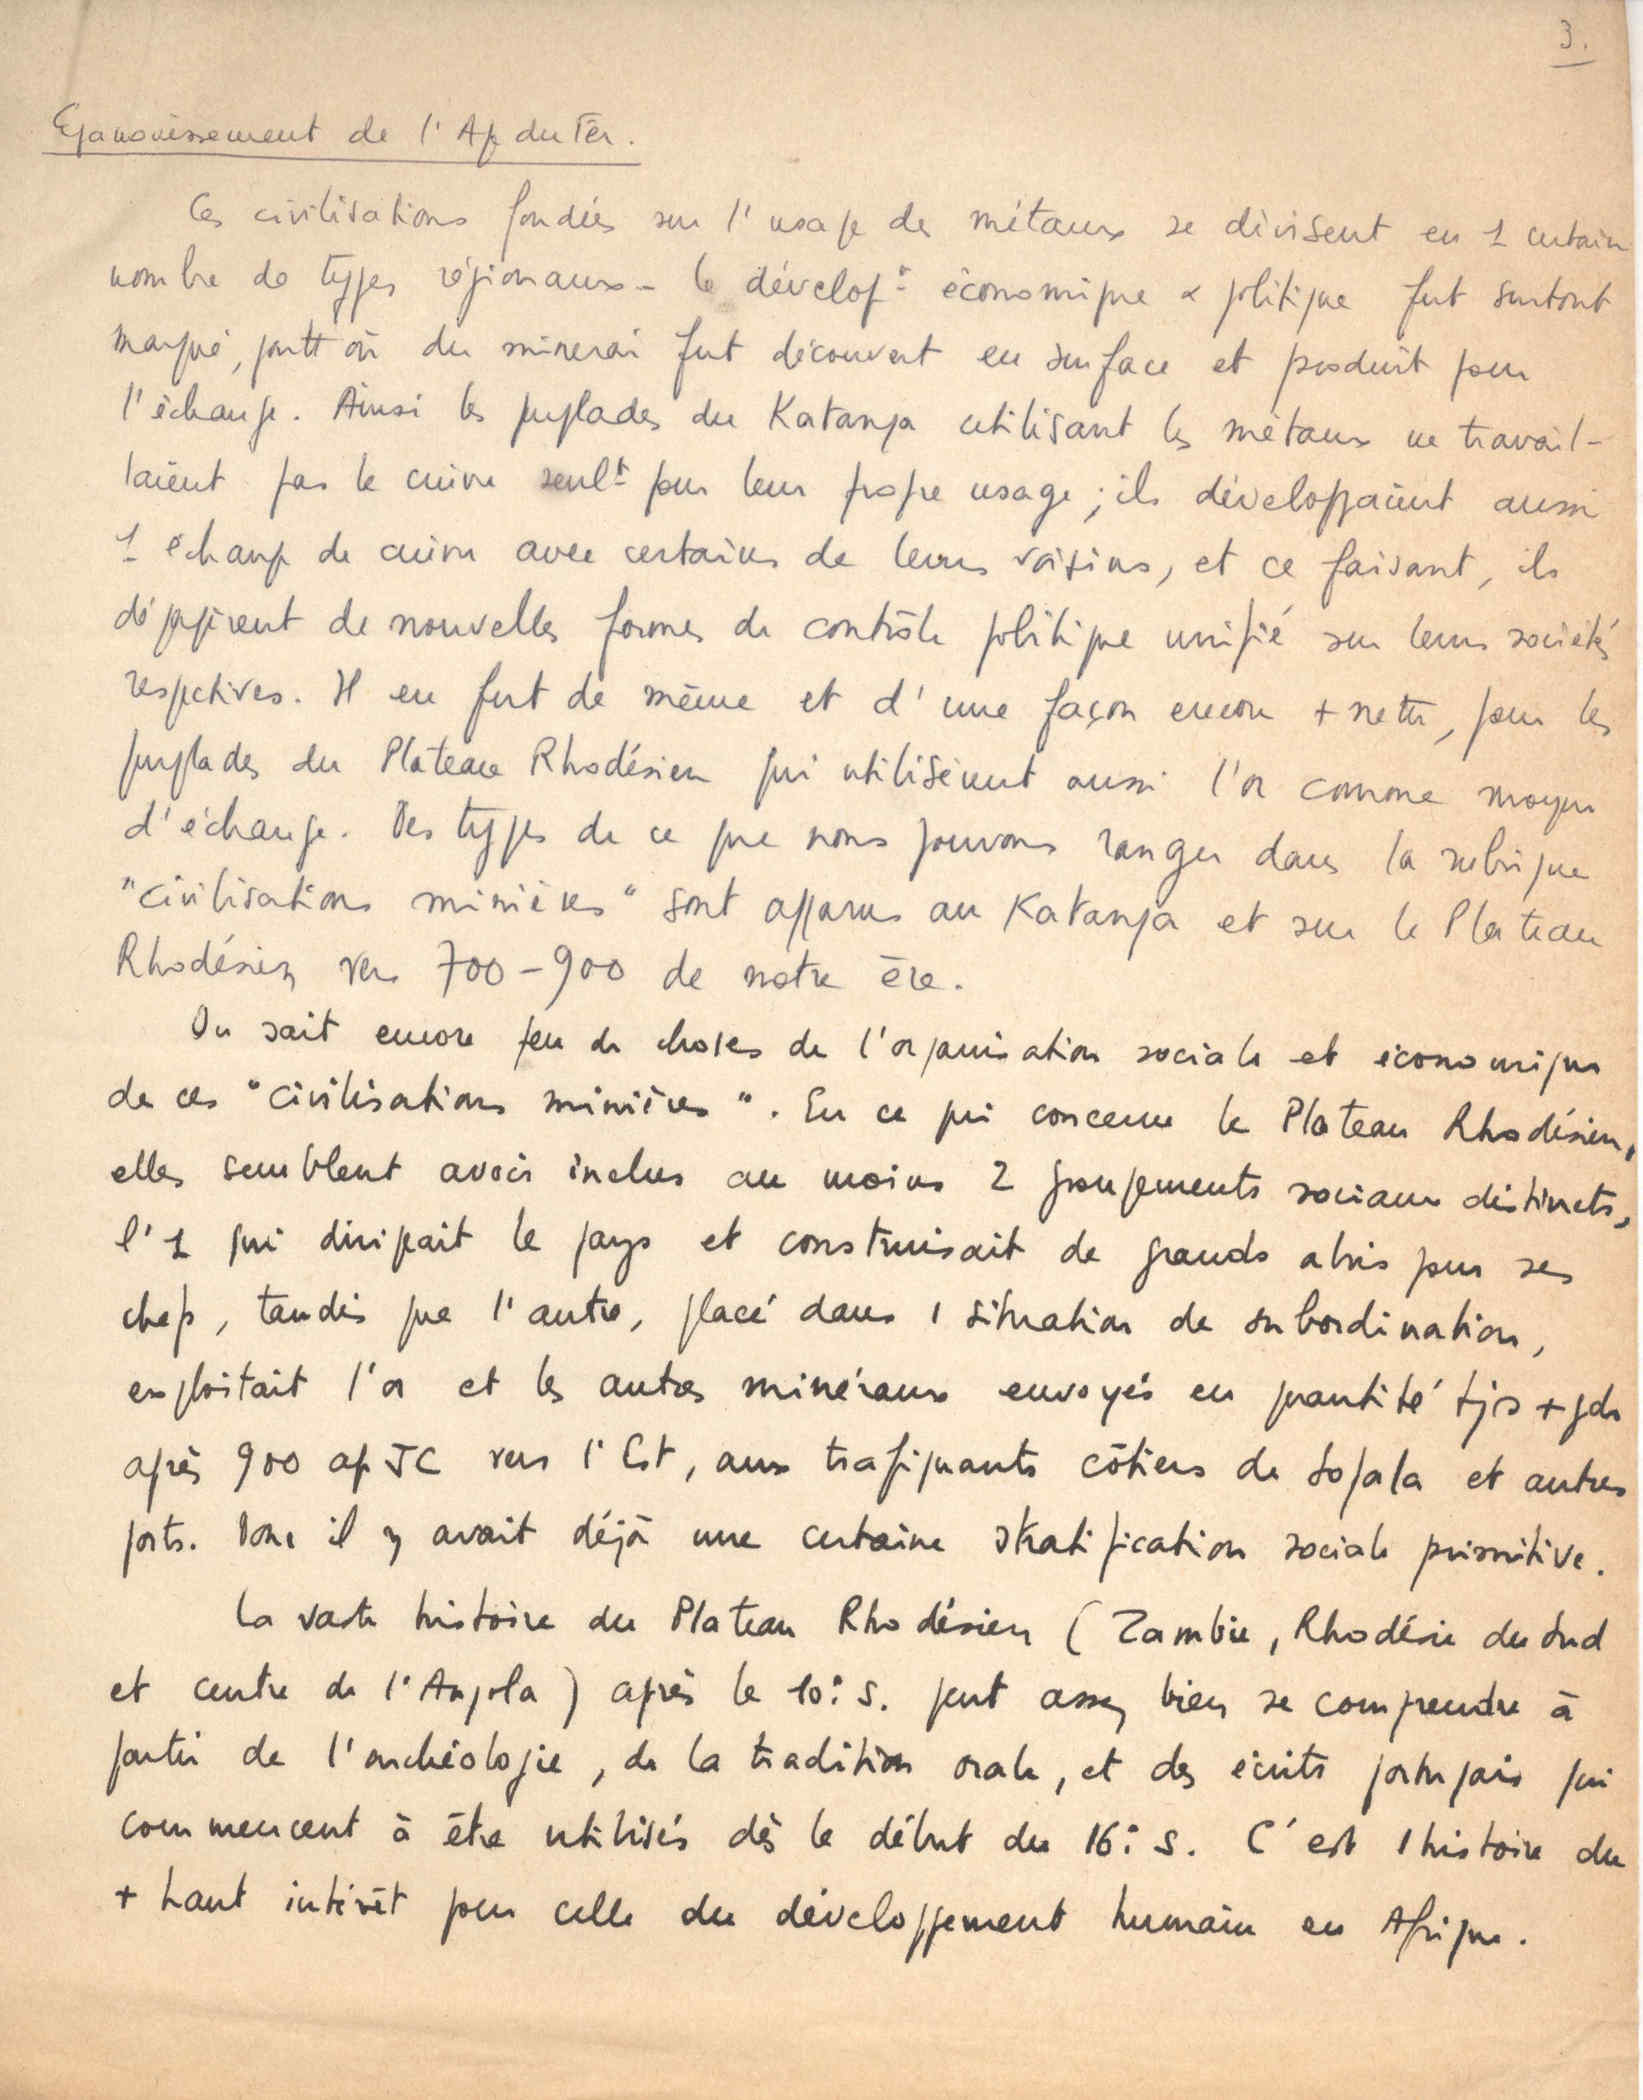 3.
Epanouissement de l'Af du Fer.
Ces civilisations fondées sur l'usage des métaux se divisent en 1 certain
nombre de types régionaux - le dévelopt économique & politique fut surtout
marqué, partt où du minerai fut découvert en surface et produit pour
l'échange. Ainsi les peuplades du Katanga utilisant les métaux ne travail-
laient pas le cuivre seult pour leur propre usage ; ils développaient aussi
1 échange de cuivre avec certains de leurs voisins, et ce faisant, ils
dégagèrent de nouvelles formes de contrôle politique unifié sur leurs sociétés
respectives. Il en fut de même et d'une façon encore + nette, pour les
peuplades du Plateau Rhodésien qui utilisèrent aussi l'or comme moyen
d'échange. Des types de ce que nous pouvons ranger dans la rubrique
"civilisations minières" sont apparus au Katanga et sur le Plateau
Rhodésien vers 700-900 de notre ère.
On sait encore peu de choses de l'organisation sociale et économique
de ces "civilisations minières". En ce qui concerne le Plateau Rhodésien,
elles semblent avoir inclus au moins 2 groupements sociaux distincts,
l'1 qui dirigeait le pays et construisait de grands abris pour ses
chefs, tandis que l'autre, placé dans 1 situation de subordination,
exploitait l'or et les autres minéraux envoyés en quantité tjrs + gde
après 900 ap JC vers l'Est, aux trafiquants côtiers de Sofala et autres
ports. Donc il y avait déjà une certaine stratification sociale primitive.
La vaste histoire du Plateau Rhodésien (Zambie, Rhodésie du Sud
et centre de l'Angola) après le 10° s. peut assez bien se comprendre à
partir de l'archéologie, de la tradition orale, et des écrits portugais qui
commencent à être utilisés dès le début du 16° s. C'est 1 histoire du
+ haut intérêt pour celle du développement humain en Afrique.